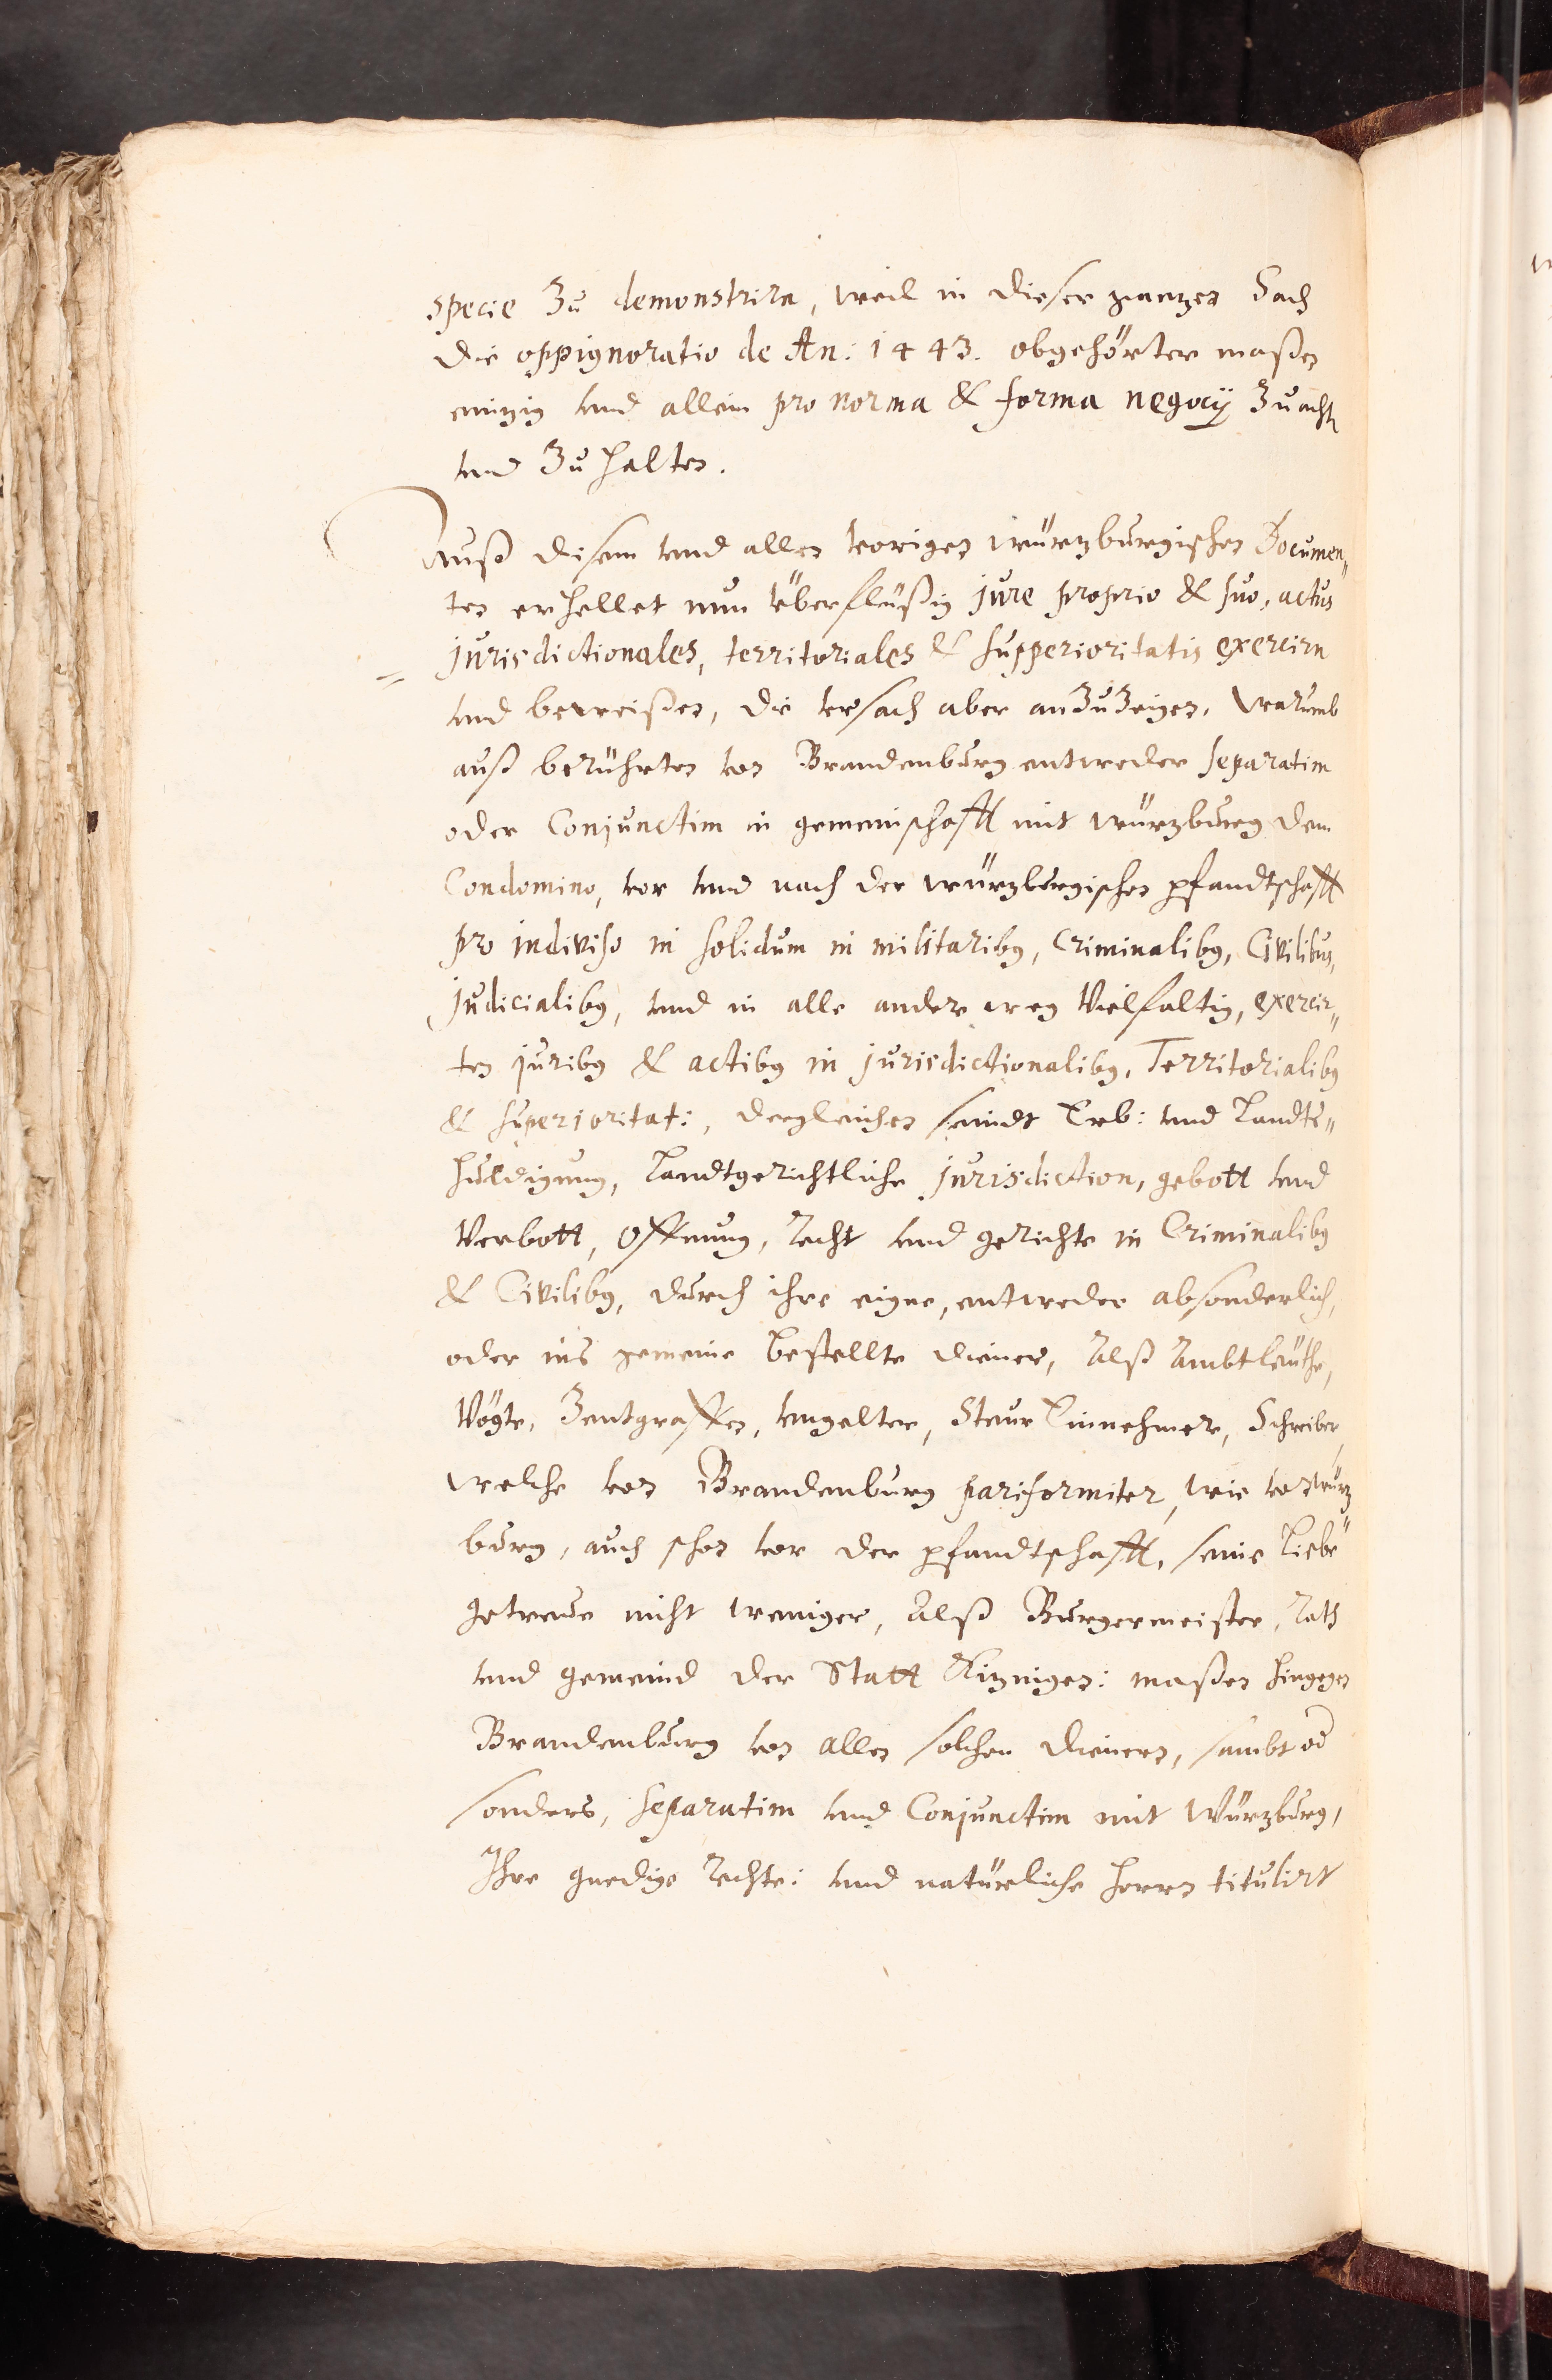 specie Zu demonstrirn, weil in dieser gantzen Sach
die oppignoratio de An: 1443. obgehörter maßen
eintzig vnd allein pro norma & forma negocÿ Zu achtn
vnd Zu halten.
Auß disem vnd allen vorigen würtzburgischen Documen„
ten erhellet nun vberflüßig jure proprio & suo, actus
jurisdictionales, territoriales & supperioritatis exercirn
vnd beweißen, die vrsach aber anZuZeigen, warumb
auß berührten von Brandenburg entweder separatim
oder Conjunctim in gemeinschafft mit würzburg dem
Condomino, vor vnd nach der würzburgischen pfandtschafft
pro indiviso in solidum in militariby, Criminaliby, Civilibus,
judicialiby, vnd in alle andere weg Vielfaltig, exercir„
ten juriby & actiby in jurisdictionaliby, Territorialiby
& superioritat:, dergleichen seindt Erb: vnd Landts„
huldigung, Landtgerichtliche jurisdiction, gebott vnd
Verbott, Offnung, recht vnd gerichte in Criminaliby
& Civiliby, durch ihre eigne, entweder absonderlich,
oder ins gemeine bestellte diener, Alß Ambtleuthe,
Vögte, Zentgraffen, vngelter, Steur Einnehmer, Schreiber,
welche von Brandenburg pariformiter, wie von würz„
burg, auch schon vor der pfandtschafft, seine Liebe
getreue nicht weniger, Alß Burgermeister, Rath
vnd gemeind der Statt Kitzingen: maßen hingegen
Brandenburg von allen solchen dienern, sambt od
sonders, separatim vnd Conjunctim mit Würzburg,
Ihre gnedige rechte: vnd natürliche herrn titulirt